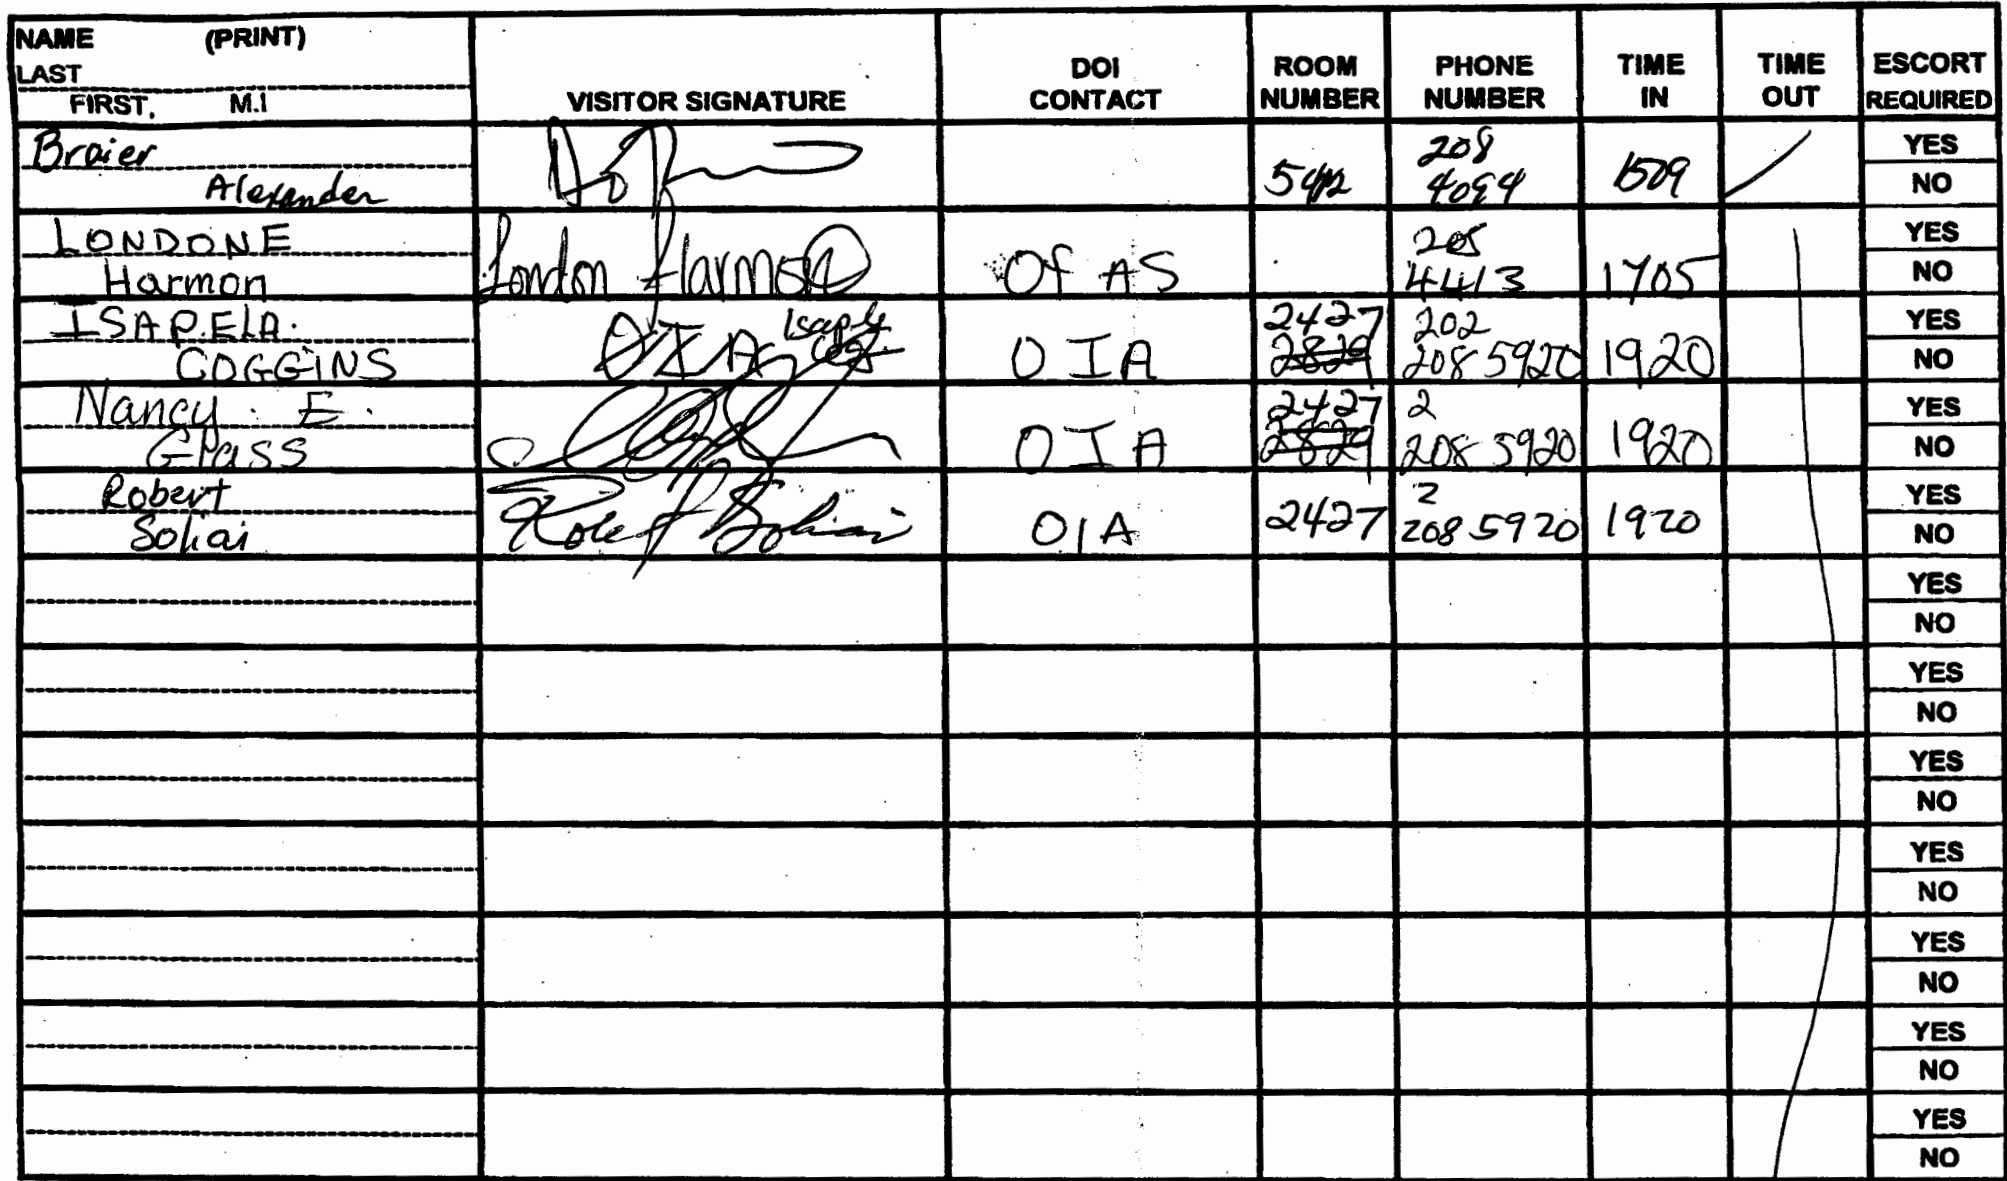 NAME (PRINT)
LAST
FIRST, M.I
VISITOR SIGNATURE
DOI
CONTACT
ROOM
NUMBER
PHONE
NUMBER
TIME
IN
TIME
OUT
ESCORT
REQUIRED
Braier
Alexander
208
4094
1509
YES
NO
LONDONE
Harmon
London Harmon
Of AS
205
4413
1705
YES
NO
ISAPELA.
COGGINS
OIA
OIA
2427
2829
202
208 5920
1920
YES
NO
Nancy. E.
Glass
OIA
2427
2829
2
208 5920
1920
YES
NO
Robert
Soliai
Robert Soliai
OIA
2427
2
208 5920
1920
YES
NO
YES
NO
YES
NO
YES
NO
YES
NO
YES
NO
YES
NO
YES
NO